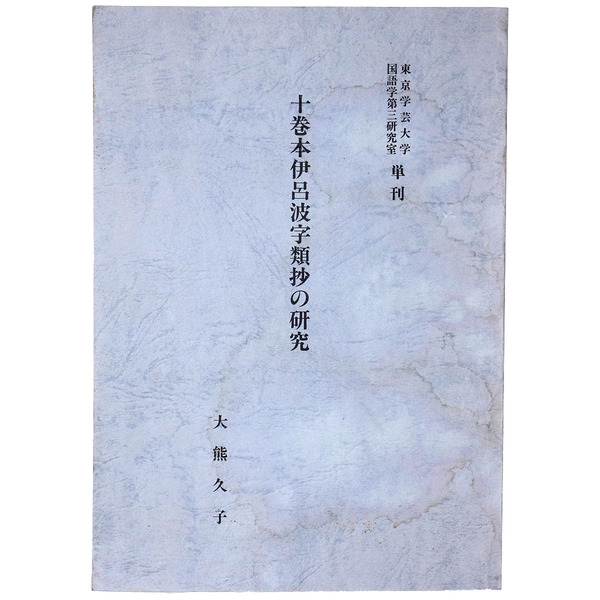 東京学芸大学
国語学第三研究室
単刊
十巻本伊呂波字類抄の研究
大熊久子